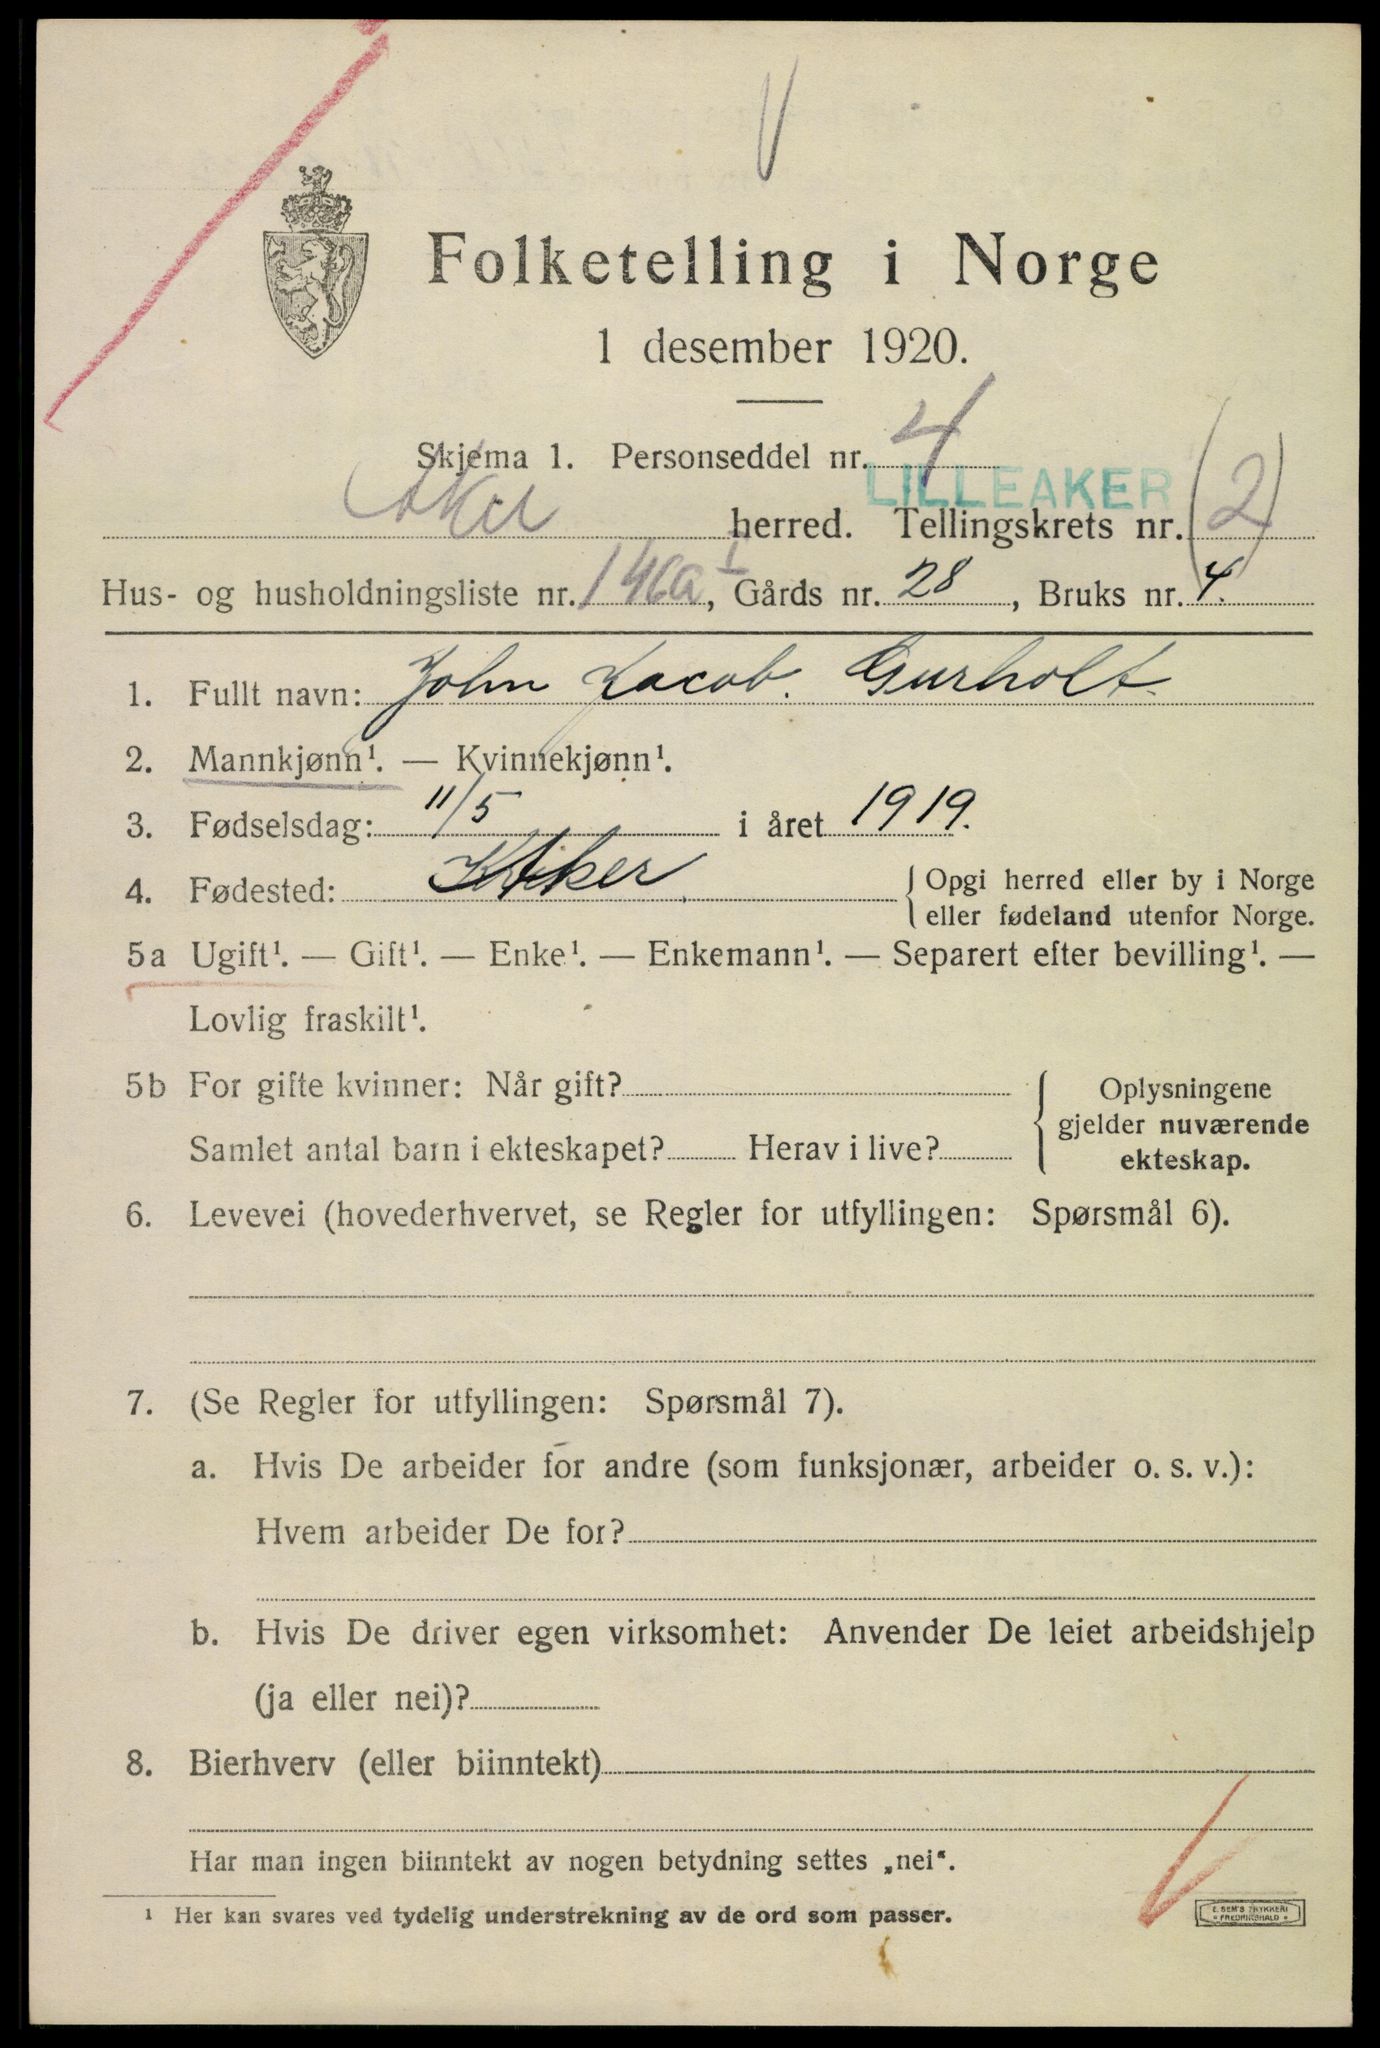 Folketelling i Norge
1 desember 1920.
Skjema 1. Personseddel nr. 4
LILLEAKER
Aker herred. Tellingskrets nr. (2)
Hus- og husholdningsliste nr. 146a I, Gårds nr. 28, Bruks nr. 4.
1. Fullt navn: John Jacob. Gurholt.
2. Mannkjønn¹. — Kvinnekjønn¹.
3. Fødselsdag: 11/5 i året 1919.
4. Fødested: Aker { Opgi herred eller by i Norge
eller fødeland utenfor Norge.
5a Ugift¹. — Gift¹. — Enke¹. — Enkemann¹. — Separert efter bevilling¹. —
Lovlig fraskilt¹.
5b For gifte kvinner: Når gift?
Samlet antal barn i ekteskapet? Herav i live?
Oplysningene
gjelder nuværende
ekteskap.
6. Levevei (hovederhvervet, se Regler for utfyllingen: Spørsmål 6).
7. (Se Regler for utfyllingen: Spørsmål 7).
a. Hvis De arbeider for andre (som funksjonær, arbeider o. s. v.):
Hvem arbeider De for?
b. Hvis De driver egen virksomhet: Anvender De leiet arbeidshjelp
(ja eller nei)?
8. Bierhverv (eller biinntekt)
Har man ingen biinntekt av nogen betydning settes „nei“.
¹ Her kan svares ved tydelig understrekning av de ord som passer.
E. SEM'S TRYKKERI
FREDRIKSHALD